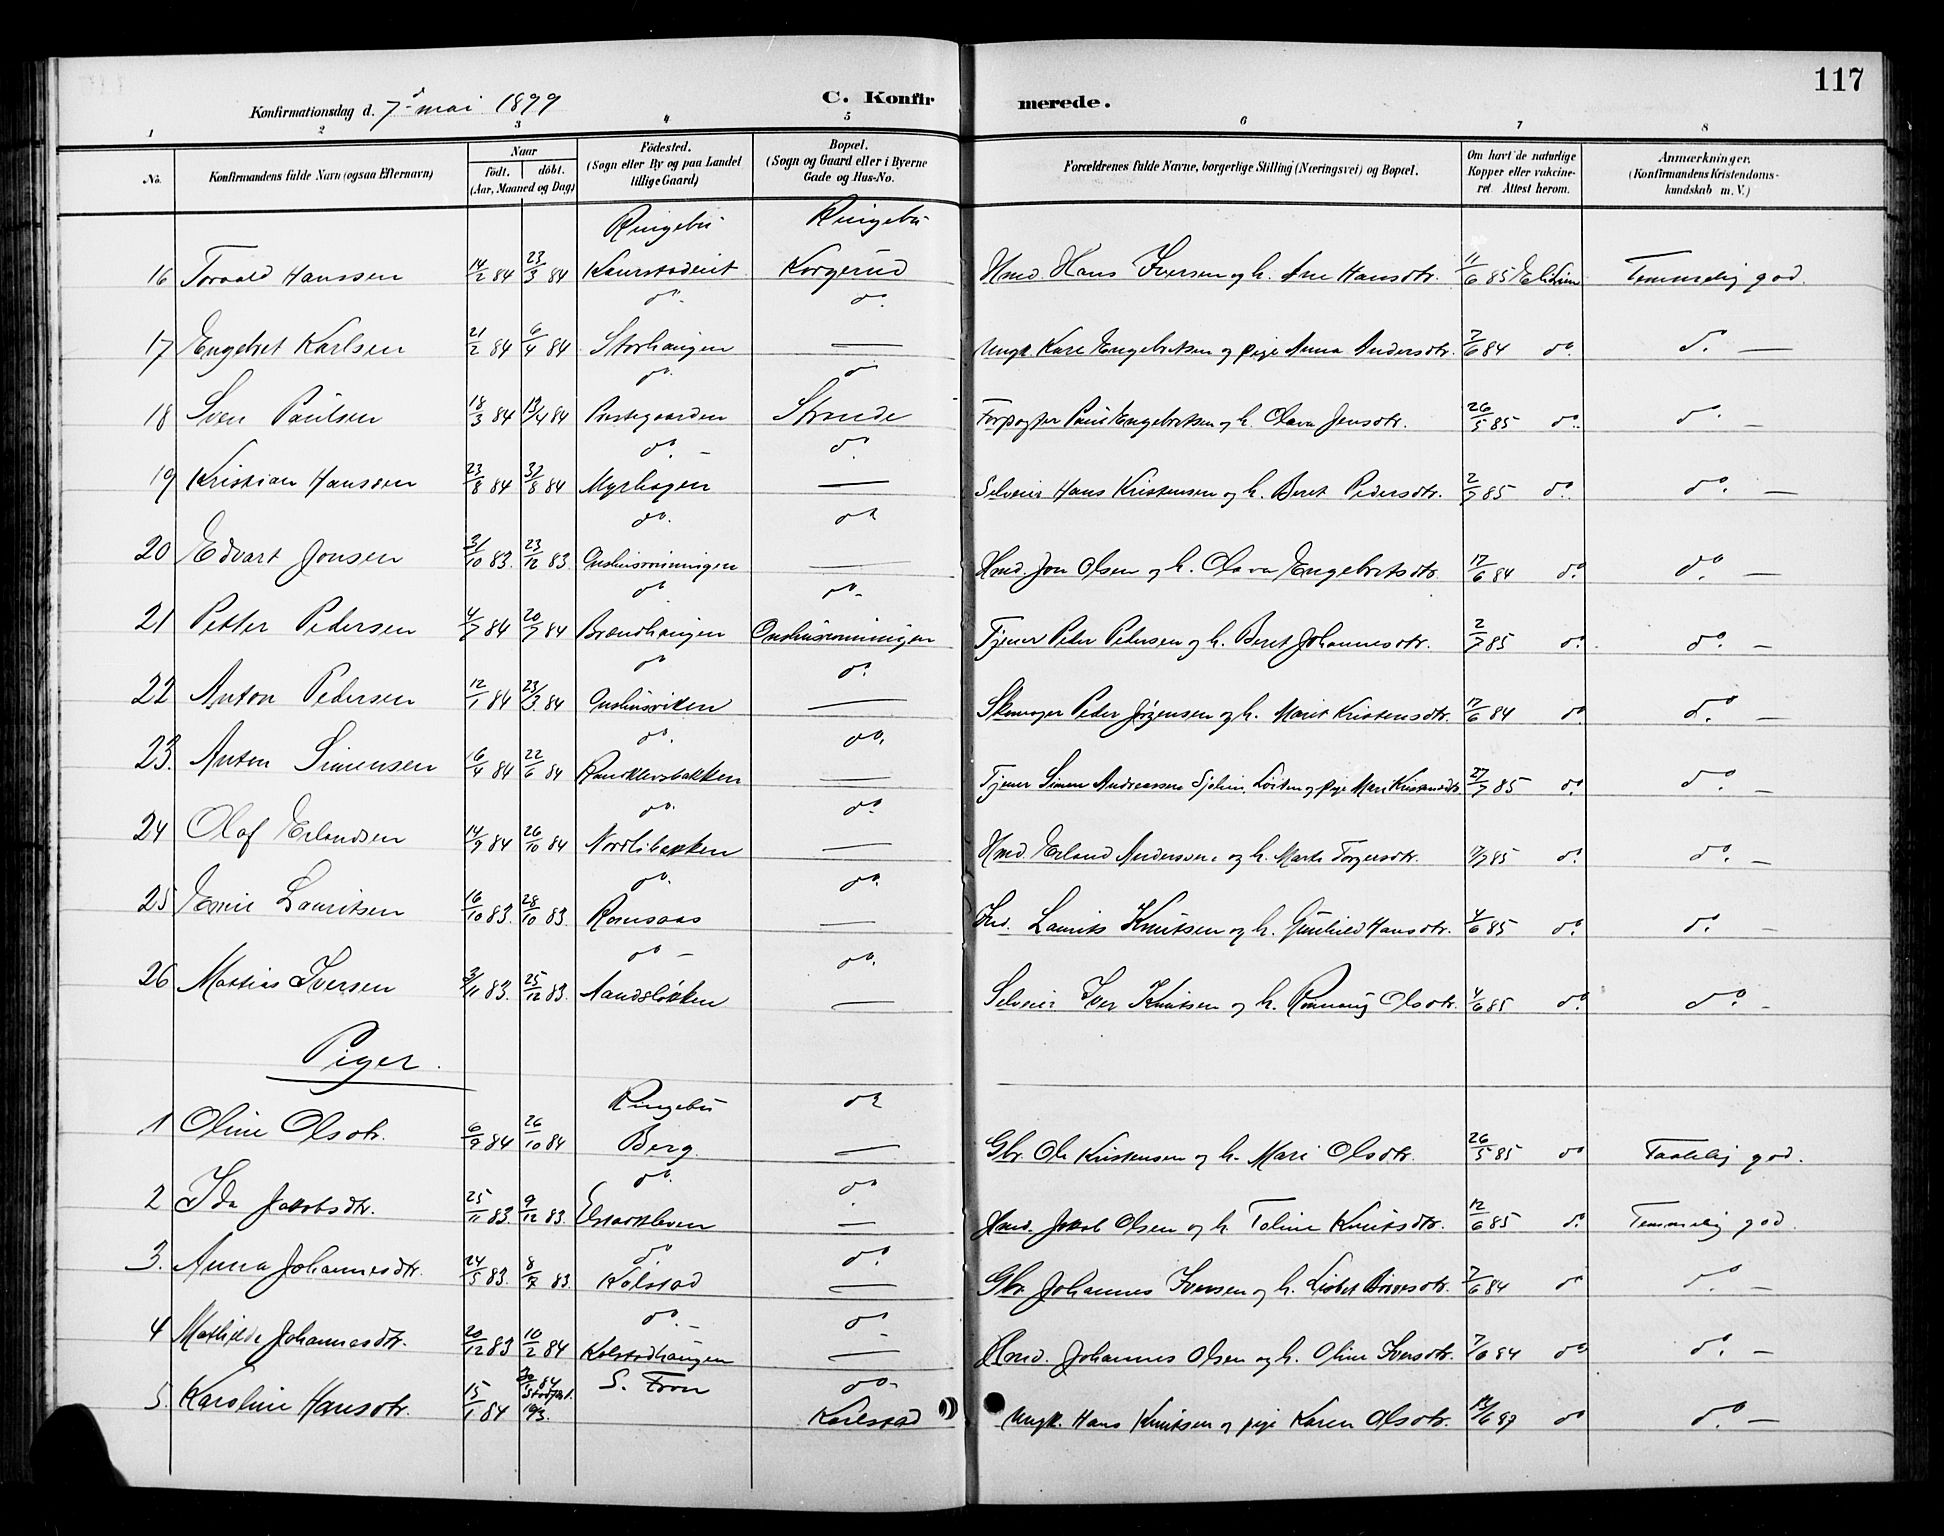 117
Konfirmationsdag d. 7de mai 1899
C. Konfirmerede.
1 2 3 4 5 6 7 8
No. | Konfirmandens fulde Navn (ogsaa Efternavn) | Naar født. døbt. (Aar, Maaned og Dag) | Fødested. (Sogn eller By og paa Landet tillige Gaard) | Bopæl. (Sogn og Gaard eller i Byerne Gade og Hus-No. | Forældrenes fulde Navne, borgerlige Stilling (Næringsvei) og Bopæl. | Om havt de naturlige Kopper eller vakcineret. Attest herom. | Anmærkninger. (Konfirmandens Kristendomskundskab m. V.)
Ringebu | Ringebu
16 | Torvald Hanssen | 14/2 84 | 23/3 84 | Korgerud | Hmd. Hans Iversen og h. Ane Hansdtr. | 11/6 85 | Temmelig god.
do. | do.
17 | Engebret Karlsen | 21/2 84 | 6/4 84 | Storhaugen | — | Ungk. Karl Engebretsen og pige Anna Andersdtr. | 7/6 84 do. | do. —
do. | do
18 | Sven Paulsen | 18/3 84 | 13/4 84 | Prestegaarden | Strande | Forpagter Paul Engebretsen og h. Olava Jensdtr. | 26/5 85 do. | do. —
do. — | do.
19 | Kristian Hanssen | 23/8 84 | 31/8 84 | Myrhagen | — | Selveier Hans Kristensen og h. Beret Pedersdtr. | 2/7 85 do. | do. —
do. | do
20 | Edvart Jonsen | 31/10 83. | 23/12 83. | — | Hmd. Jon Olsen og h. Olava Engebretsdtr. | 17/6 84 do. | do. —
do | do.
21 | Petter Pedersen | 4/7 84 | 20/7 84 | Brændhaugen | Tjener Peder Pedersen og h. Beret Johannesdtr. | 2/7 85 do. | do. —
do | do.
22 | Anton Pedersen | 12/1 84 | 23/3 84 | — | Skomager Peder Jørgensen og h. Marit Kristensdtr. | 17/6 84 do | do. —
do. | do.
23. | Anton Simensen | 16/4 84 | 22/6 84 | Randklevsbakken | — | Tjener Simen Andreassen Løiten og pige Mari Kristiansdtr | 27/7 85 do. | do. —
do. | do.
24 | Olaf Erlandsen | 14/9 84 | 26/10 84 | Nordlibakken | — | Hmd. Erland Andersen og h. Marte Torgersdtr. | 17/7 85 do. | do. —
do. | do.
25 | Emil Lauritsen | 16/10 83. | 28/10 83. | Romsaas | — | Ind. Laurits Knutsen og h. Gunhild Hansdtr. | 4/6 85 do. | do. —
do — | do.
26 | Mattias Iversen | 3/11 83. | 25/12 83. | — | Selveier Iver Knutsen og h. Rønnaug Olsdtr. | 4/6 85 do. | do. —
Piger.
Ringebu | do
1 | Oline Olsdtr. | 6/9 84 | 26/10 84 | Berg | — | Gbr. Ole Kristensen og h. Mari Olsdtr. | 26/5 85 do | Taalelig god.
do. | do.
2 | Ida Jakobsdtr. | 25/11 83. | 9/12 83. | — | Hmd. Jakob Olsen og h. Toline Knutsdtr. | 12/6 85 do. | Temmelig god.
do | do.
3. | Anna Johannesdtr. | 24/5 83. | 8/7 83. | Kolstad | — | Gbr. Johannes Iversen og h. Lisbet | 7/6 84 do | do. —
do. — | do.
4 | Mathilde Johannesdtr. | 20/12 83 | 10/2 84 | Kolstadhaugen | — | Hmd. Johannes Olsen og h. Oline Iversdtr. | 7/6 84 do | do. —
S. Fron | do —
5. | Karoline Hansdtr. | 15/1 84 | Stadf. | Karlstad | Ungk. Hans Knutsen og pige Karen Olsdtr. | do | do. —